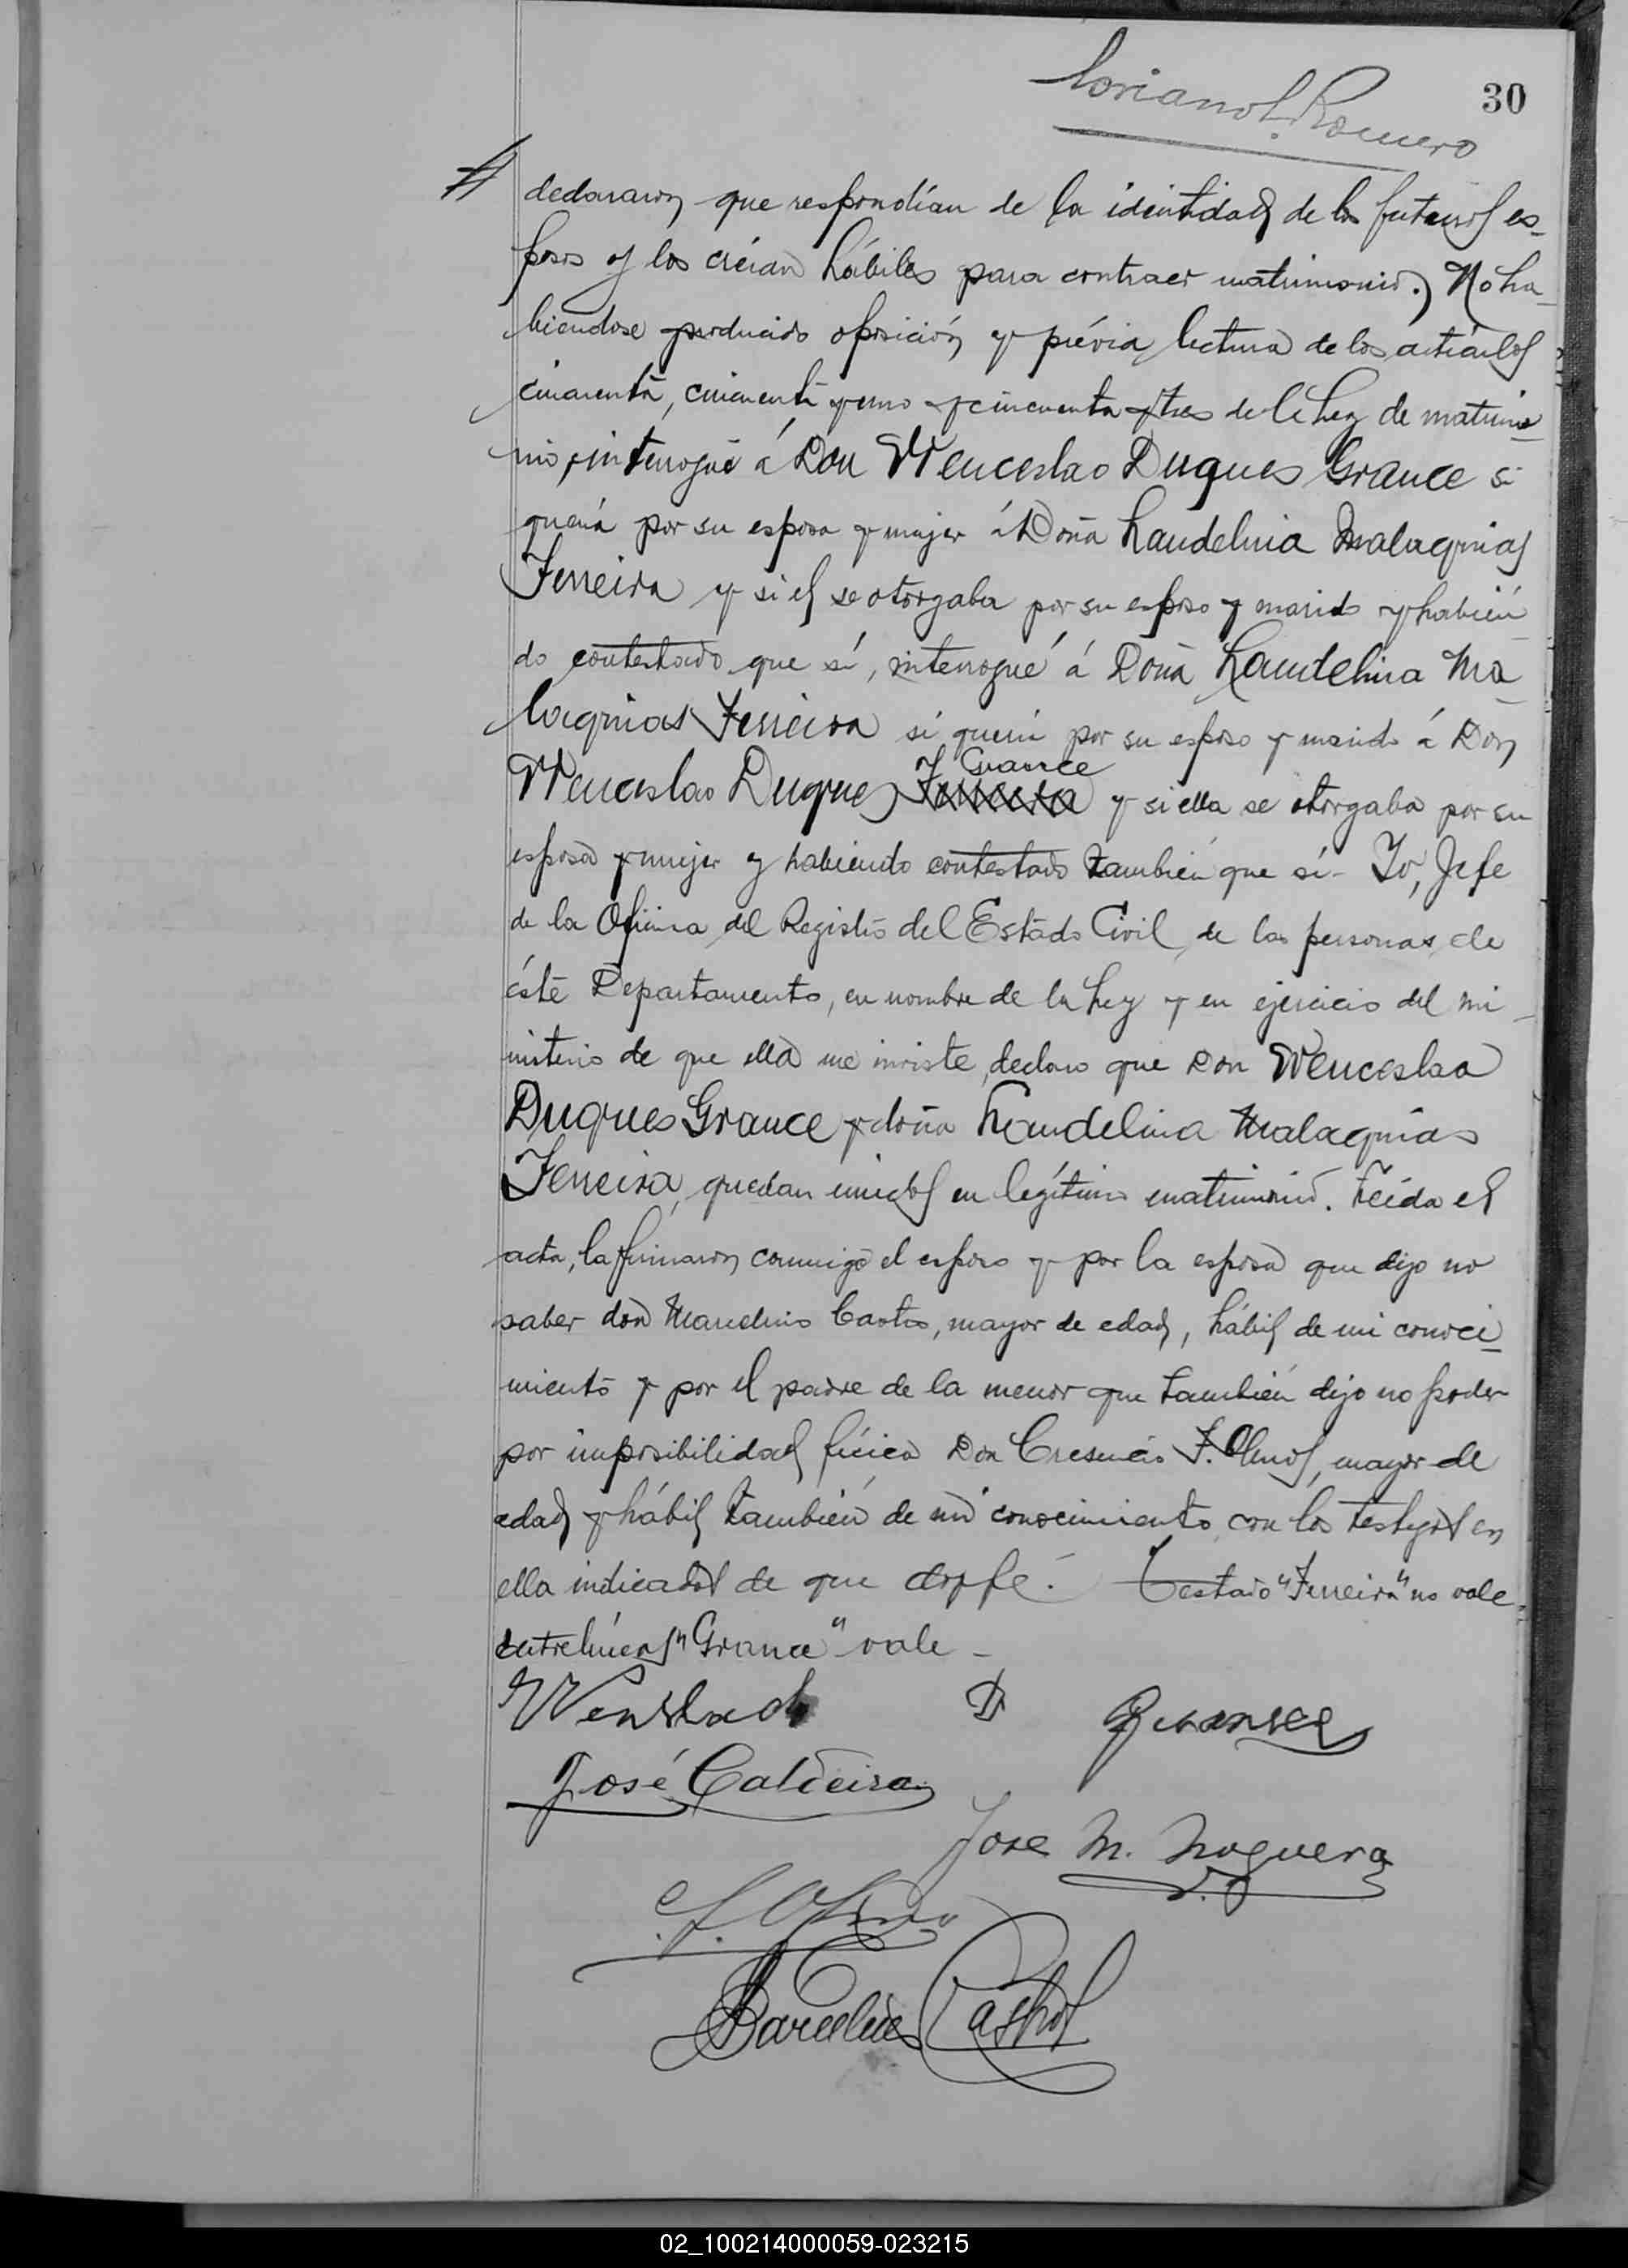 30
Loriano L. Romero
declararon que respondían de la identidad de los futuros es-
posos y los creían hábiles para contraer matrimonio.) No ha-
biendose producido oposición y prévia lectura de los artículos
cincuenta, cincuenta y uno y cincuenta y tres de la Ley de matrimo-
nio, interrogué á Don Wenceslao Duques Grance si
quería por su esposa y mujer á Doña Laudelina Malaquias
Ferreira y si él se otorgaba por su esposo y marido y habien-
do contestado que sí, interrogué á Doña Laudelina Ma-
laquias Ferreira si quería por su esposo y marido á Don
Grance
Wenceslao Duques Ferreira y si ella se otorgaba por su
esposa y mujer y habiendo contestado también que sí - Yo, Jefe
de la Oficina del Registro del Estado Civil de las personas de
éste Departamento, en nombre de la Ley y en ejercicio del mi-
nisterio de que ella me inviste, declaro que Don Wenceslao
Duques Grance y doña Laudelina Malaquias
Ferreira, quedan unidos en legítimo matrimonio. Leída el
acta, la firmaron conmigo el esposo y por la esposa que dijo no
saber don Marcelino Castro, mayor de edad, hábil de mi conoci-
miento y por el padre de la menor que también dijo no poder
por imposibilidad fícica Don Cresencio F. Olmos, mayor de
edad y hábil también de mi conocimiento con los testigos en
ella indicados de que doy fé. Testado "Ferreira" no vale.
entrelíneas "Grance" vale -
Wenslado D Granse
José Caldeira
Jose M. Noguera
C. F. Olmos
Marcelino Castro
02_100214000059-023215